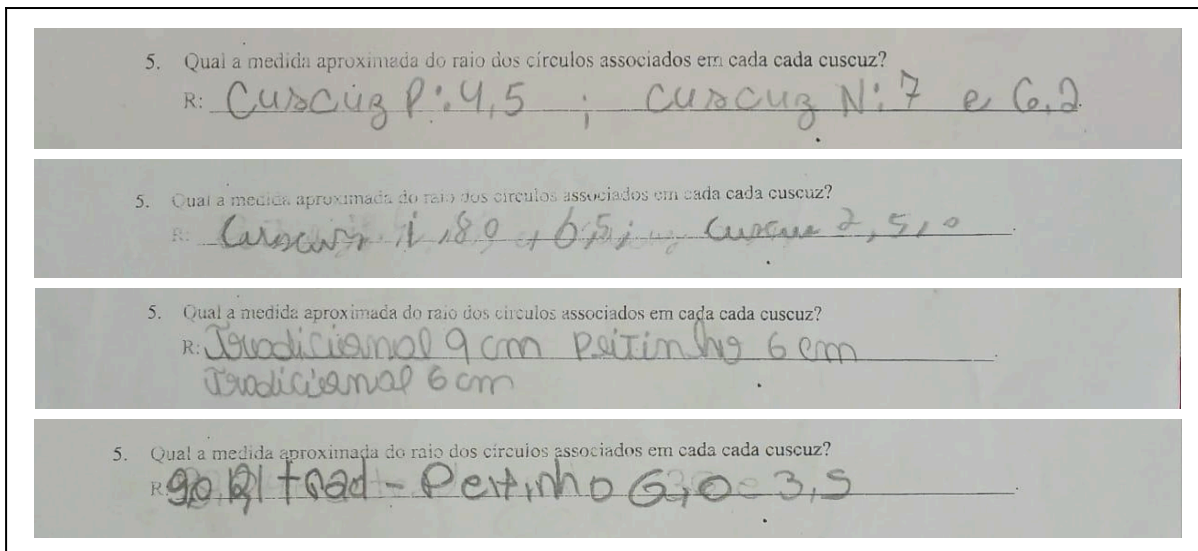 5. Qual a medida aproximada do raio dos círculos associados em cada cada cuscuz?
R: Cuscuz P: 4,5 ; cuscuz N: 7 e 6.2
5. Qual a medida aproximada do raio dos círculos associados em cada cada cuscuz?
R: 1,80 , 6,5; 2,5,0
5. Qual a medida aproximada do raio dos círculos associados em cada cada cuscuz?
R: Tradicional 9 cm Peitinho 6 cm
Tradicional 6 cm
5. Qual a medida aproximada do raio dos círculos associados em cada cada cuscuz?
R: trad - Peitinho 6,0 3,5